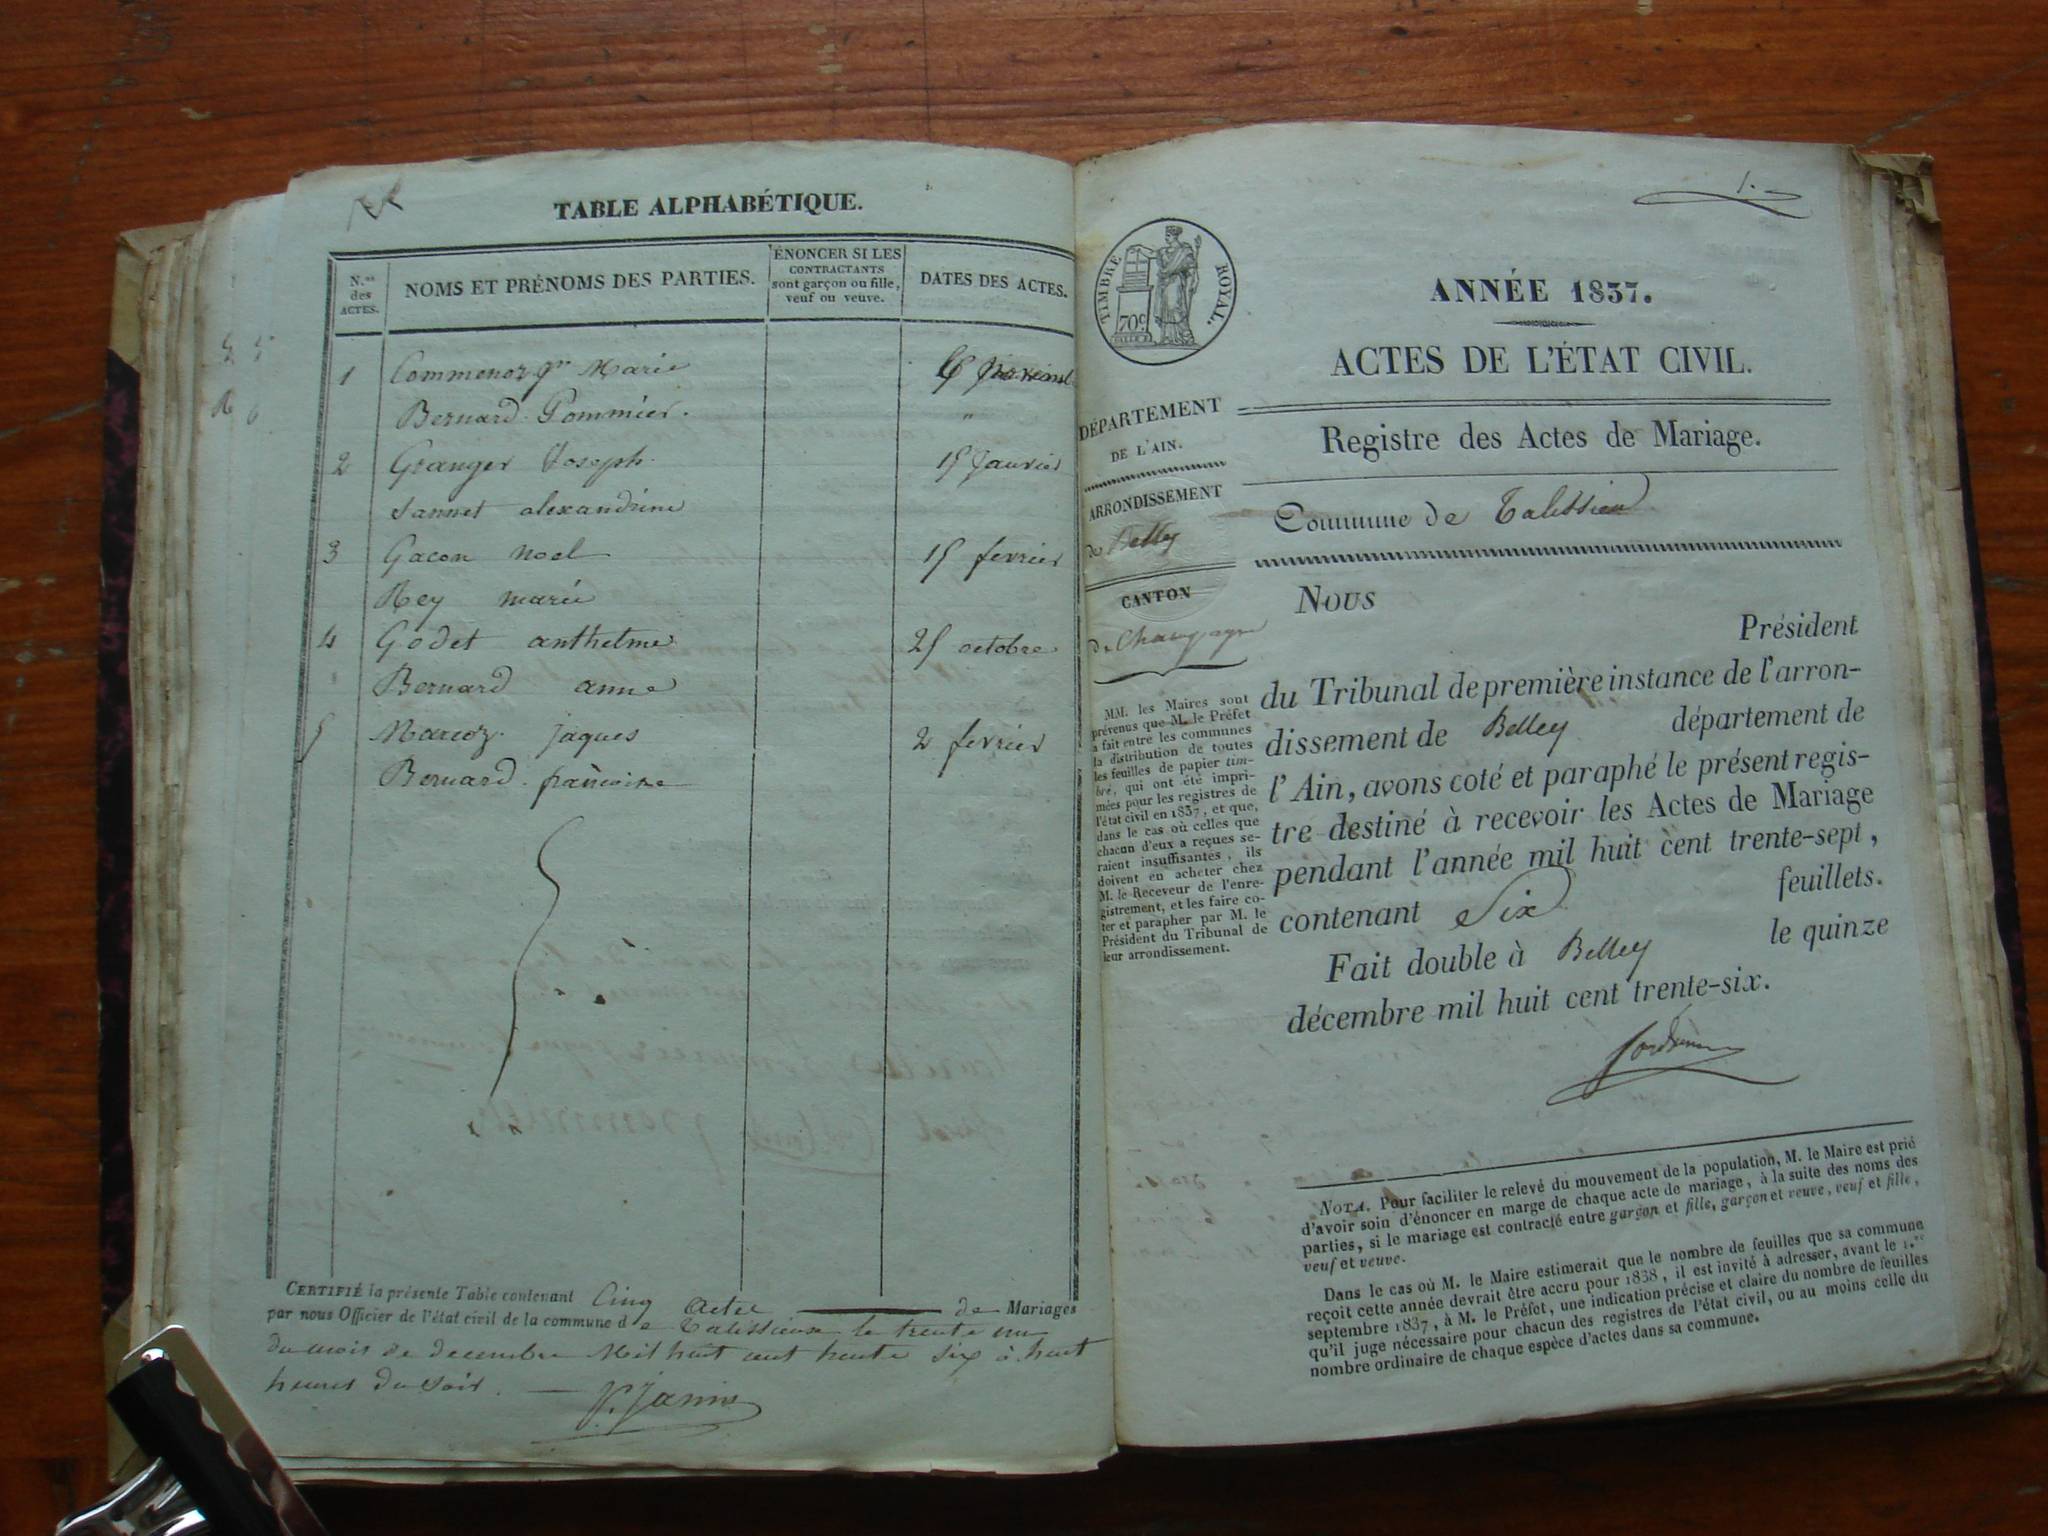 TABLE ALPHABÉTIQUE.
N.os des ACTES.
NOMS ET PRÉNOMS DES PARTIES.
ÉNONCER SI LES
CONTRACTANTS
sont garçon ou fille,
veuf ou veuve.
DATES DES ACTES.
1 Commenoz Marie
Bernard Pommier. "
2 Granger Joseph 15 Janvier
Jannet alexandrine
3 Gacon noel 15 fevrier
Rey marie
4 Godet anthelme 25 octobre
Bernard anne
5 Marcoz jaques 2 fevrier
Bernard françoise
CERTIFIÉ la présente Table contenant Cinq Actes de Mariages
par nous Officier de l'état civil de la commune de Talissieux le trente un
du mois de decembre Mil huit cent trente six à huit
heures du soir. P. Janin
1.
TIMBRE ROYAL.
70c
ANNÉE 1837.
ACTES DE L'ÉTAT CIVIL.
DÉPARTEMENT
DE L'AIN.
ARRONDISSEMENT
de Belley
CANTON
de Champagne
Registre des Actes de Mariage.
Commune de Talissieu
MM. les Maires sont
prévenus que M. le Préfet
a fait entre les communes
la distribution de toutes
les feuilles de papier tim-
bré, qui ont été impri-
mées pour les registres de
l'état civil en 1837, et que,
dans le cas où celles que
chacun d'eux a reçues se-
raient insuffisantes, ils
doivent en acheter chez
M. le Receveur de l'enre-
gistrement, et les faire co-
ter et parapher par M. le
Président du Tribunal de
leur arrondissement.
NOUS
Président
du Tribunal de première instance de l'arron-
dissement de Belley département de
l'Ain, avons coté et paraphé le présent regis-
tre destiné à recevoir les Actes de Mariage
pendant l'année mil huit cent trente-sept,
contenant Six feuillets.
Fait double à Belley le quinze
décembre mil huit cent trente-six.
NOTA. Pour faciliter le relevé du mouvement de la population, M. le Maire est prié
d'avoir soin d'énoncer en marge de chaque acte de mariage, à la suite des noms des
parties, si le mariage est contracté entre garçon et fille, garçon et veuve, veuf et fille,
veuf et veuve.
Dans le cas où M. le Maire estimerait que le nombre de feuilles que sa commune
reçoit cette année devrait être accru pour 1838, il est invité à adresser, avant le 1.er
septembre 1837, à M. le Préfet, une indication précise et claire du nombre de feuilles
qu'il juge nécessaire pour chacun des registres de l'état civil, ou au moins celle du
nombre ordinaire de chaque espèce d'actes dans sa commune.